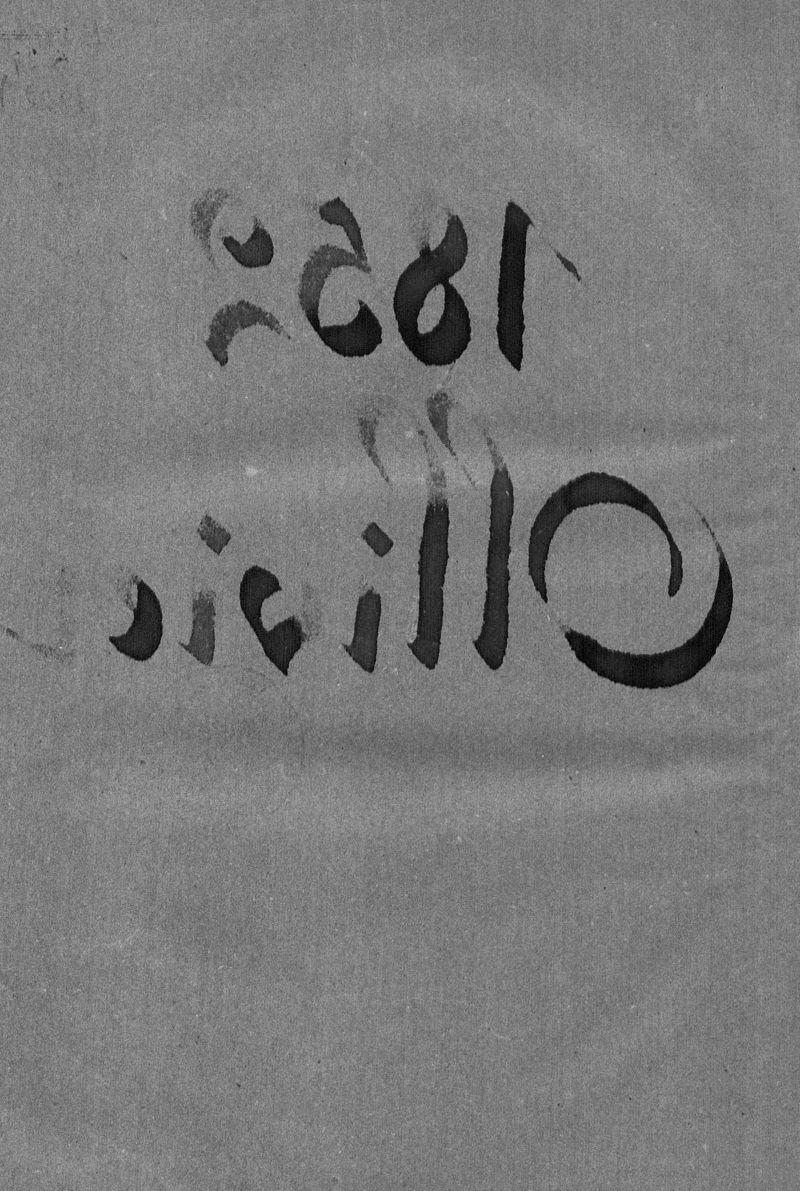 1852
Ollivie